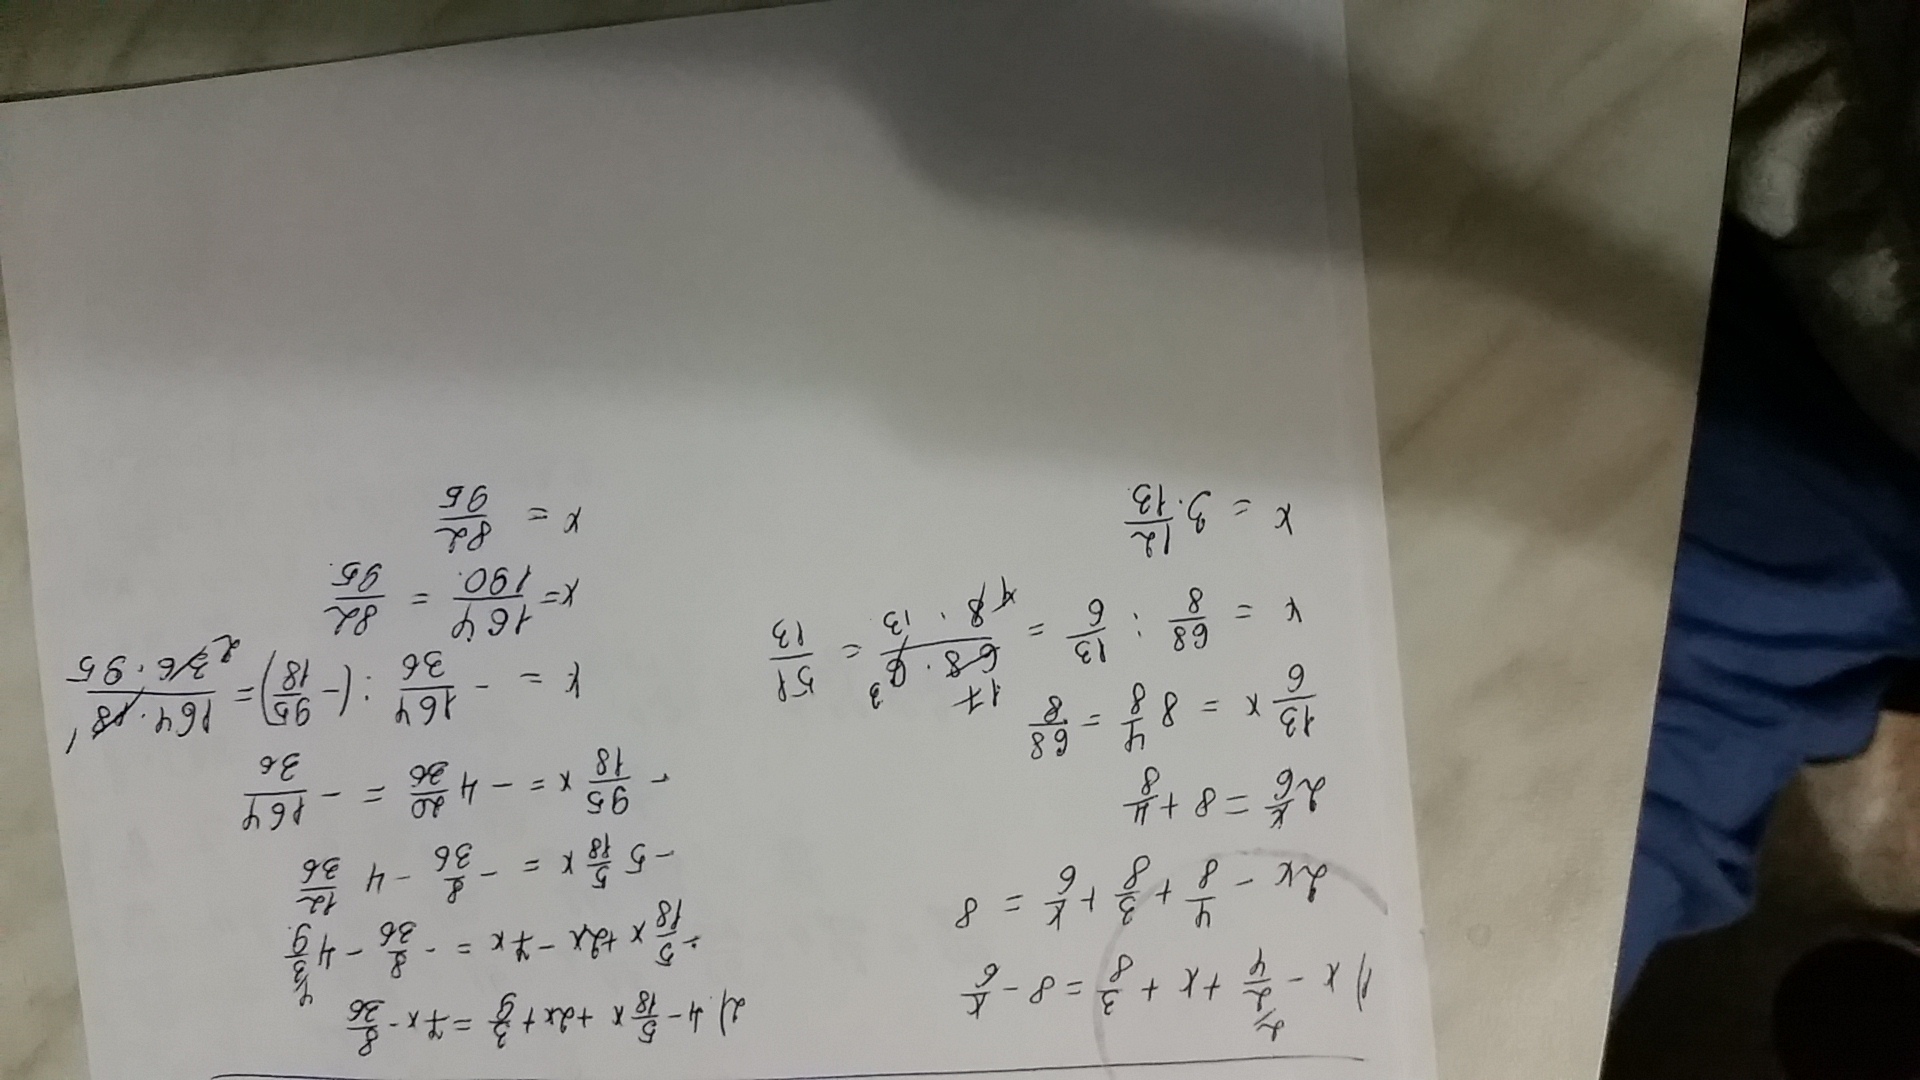 1) x - 2/4 + x + 3/8 = 8 - x/6
2x - 4/8 + 3/8 + x/6 = 8
2 x/6 = 8 + 4/8
13/6 x = 8 4/8 = 68/8
x = 68/8 : 13/6 = 68 · 6/8 · 13 = 51/13
x = 3 · 12/13
2) 4 - 5/18 x + 2x + 3/9 = 7x - 8/36
- 5/18 x + 2x - 7x = - 8/36 - 4 3/9
- 5 5/18 x = - 8/36 - 4 12/36
- 95/18 x = - 4 20/36 = - 164/36
x = - 164/36 : (- 95/18) = 164 · 18/36 · 95
x = 164/190 = 82/95
x = 82/95